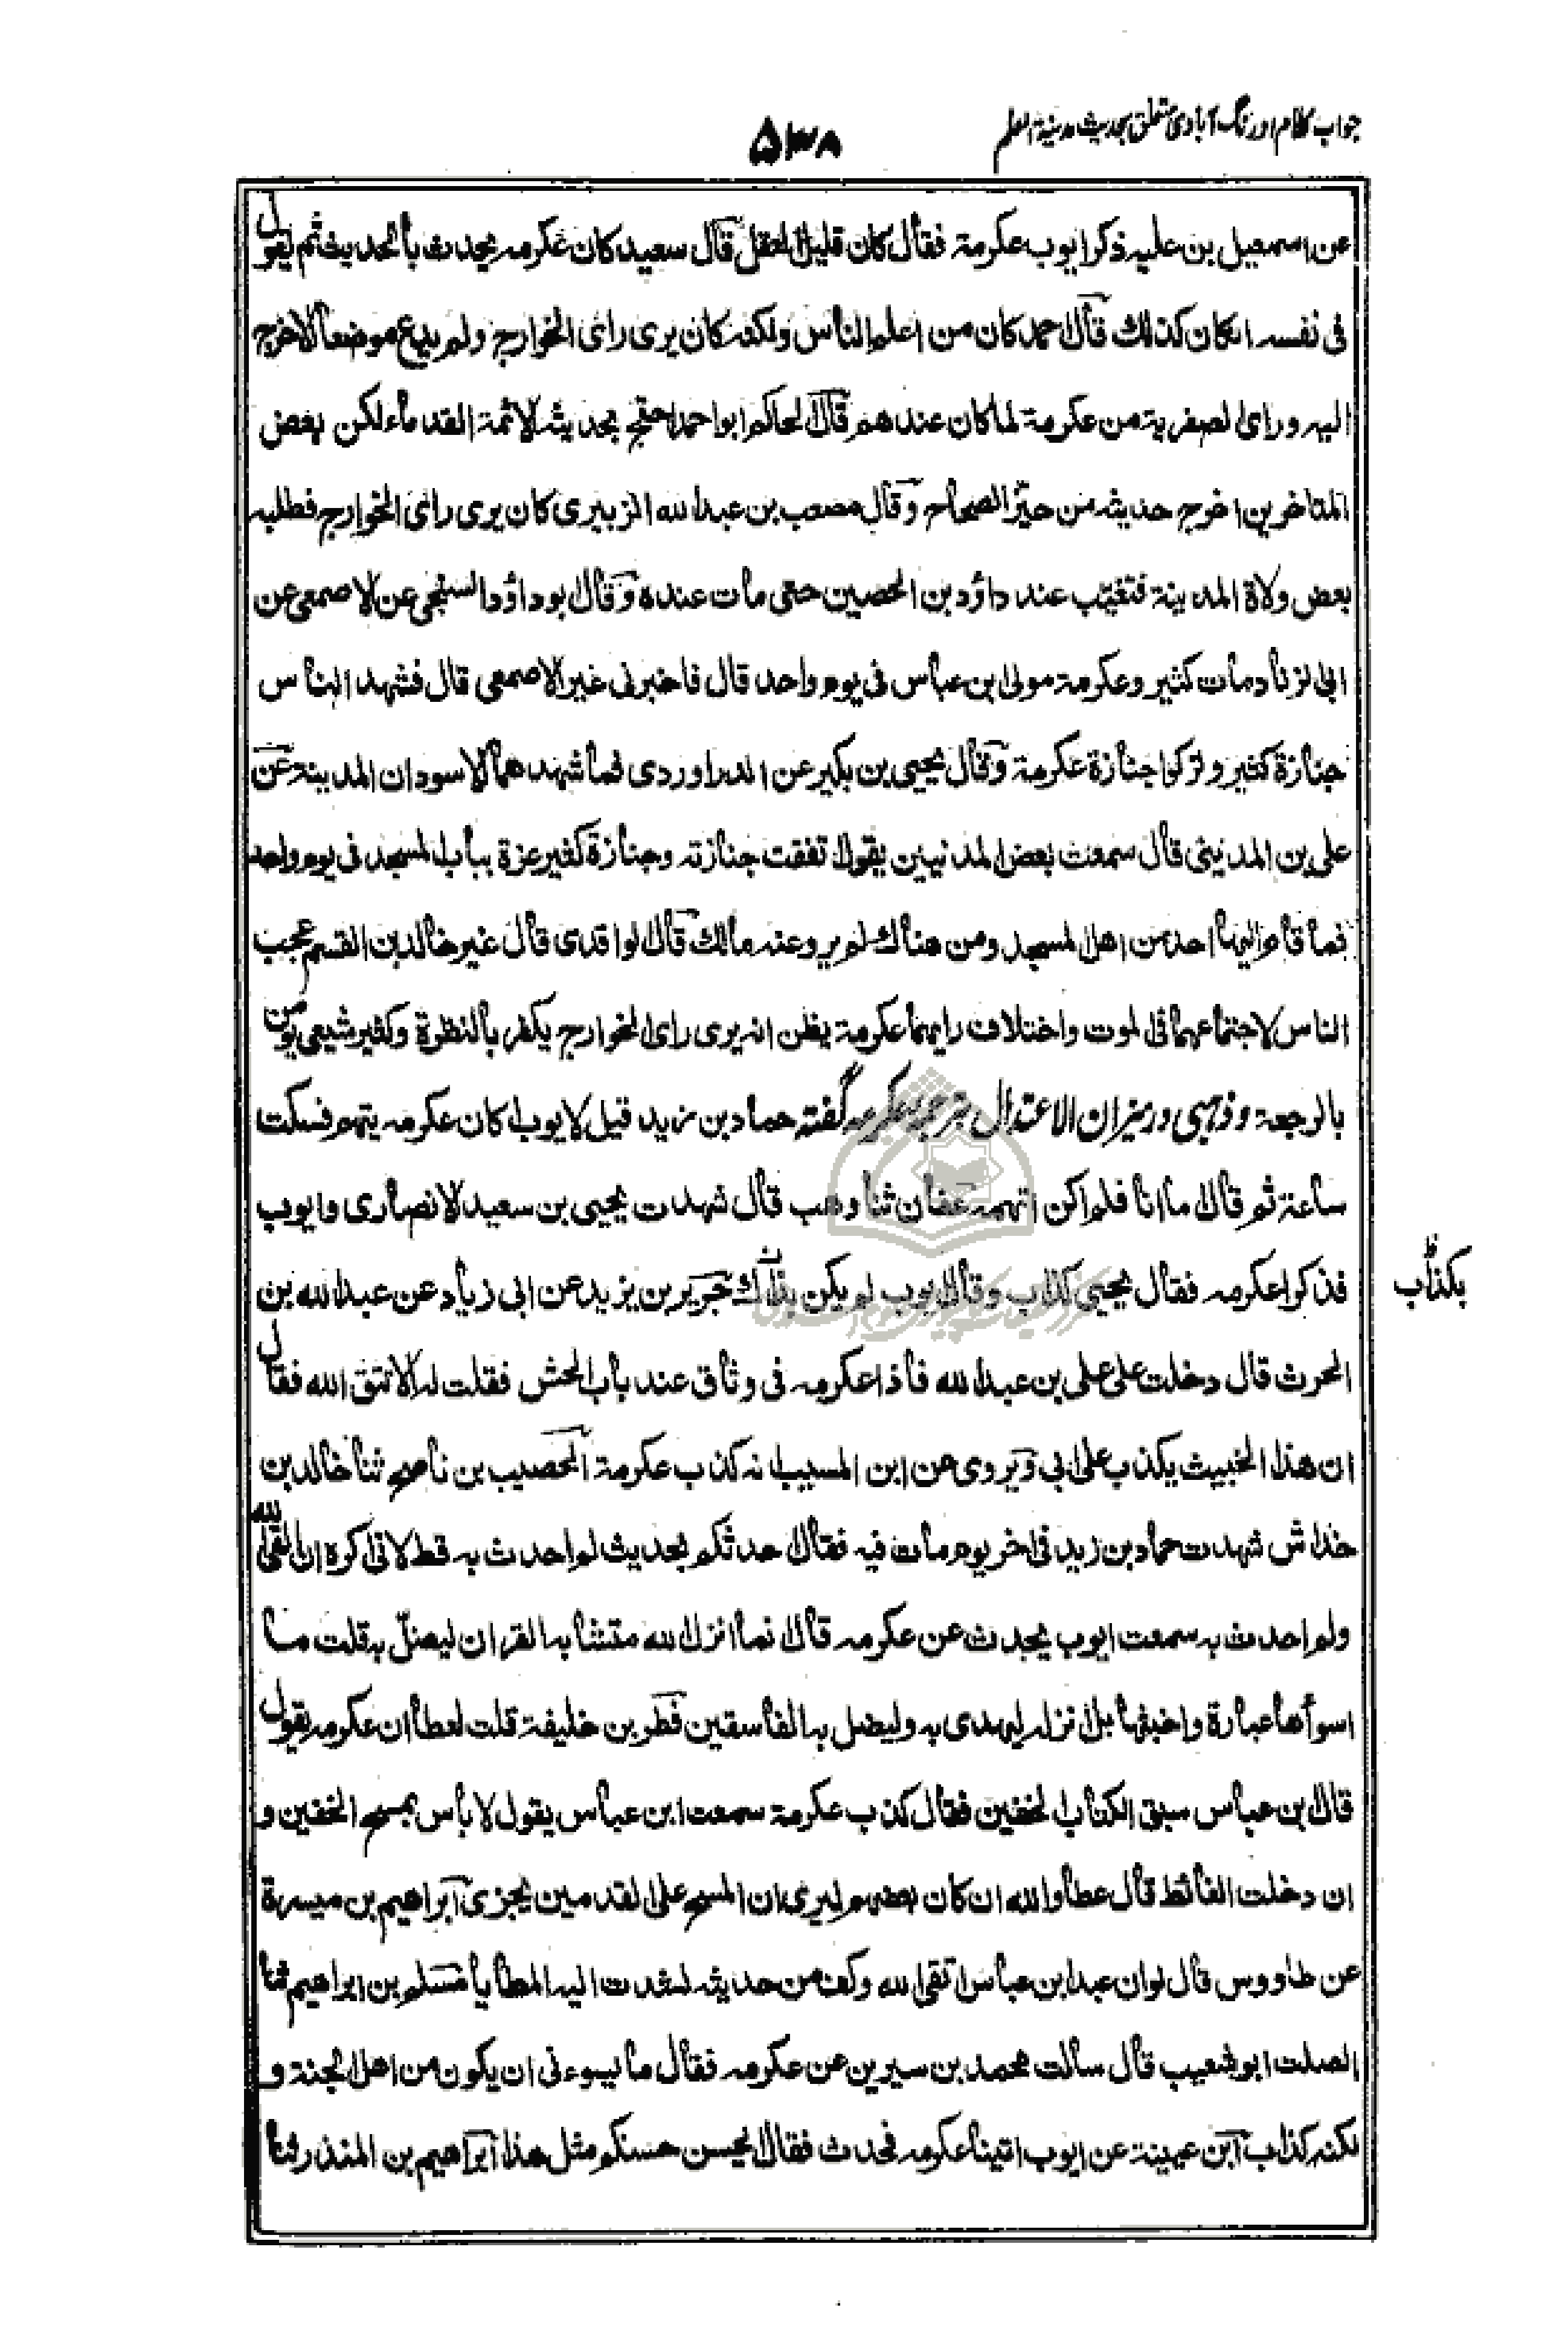 جواب کلام اورنگ آبادی متعلق بحدیث مدینة العلم
۵۳۸
عن اسمعیل بن علیه ذکر ایوب عکرمة فقال کان قلیل العقل قال سعید کان عکرمه یحدث بالحدیث ثم یقول
فی نفسه انکان کذلك قال احمد کان من اعلم الناس ولکنه کان یری رای الخوارج ولم یدع موضعا الا خرج
الیه و رای الصفریة من عکرمة لما کان عندهم قال الحاکم ابو احمد احتج بحدیثه الائمة القدماء لکن بعض
المتاخرین اخرج حدیثه من حیّز الصحاح وقال مصعب بن عبد الله الزبیری کان یری رای الخوارج فطلبه
بعض ولاة المدینة فتغیّب عند داؤد بن الحصین حتی مات عنده وقال ابو داؤد السنجی عن الاصمعی عن
ابی الزناد مات کثیر وعکرمة مولی ابن عباس فی یوم واحد قال فاخبرنی غیر الاصمعی قال فشهد الناس
جنازة کثیر وترکوا جنازة عکرمة وقال یحیی بن بکیر عن الدراوردی فما شهدهما الا سودان المدینة عن
علی بن المدینی قال سمعت بعض المدنیین یقول تفقت جنازته وجنازة کثیر عزة بباب المسجد فی یوم واحد
فما قام الیها احد من اهل المسجد ومن هناك لم یرو عنه مالك قال الواقدی قال غیر خالد بن القسم عجب
الناس لاجتماعهما فی الموت واختلاف رایهما عکرمة یظن انه یری رای الخوارج یکفر بالنظرة وکثیر شیعی یومن
بالرجعة و ذهبی در میزان الاعتدال بترجمه عکرمه گفته حماد بن زید قیل لایوب اکان عکرمه یتهم فسکت
ساعة ثم قال ما انا فلم اکن اتهمه عفان ثنا وهب قال شهدت یحیی بن سعید الانصاری وایوب
فذکرا عکرمه فقال یحیی کذاب وقال ایوب لم یکن بذاك جریر بن یزید عن ابی زیاد عن عبد الله بن
بکذاب
الحرث قال دخلت علی علی بن عبد الله فاذا عکرمه فی وثاق عند باب الحش فقلت له الا تتق الله فقال
ان هذا الخبیث یکذب علی ابی ویروی عن ابن المسیب انه کذب عکرمة الخصیب بن ناصح ثنا خالد بن
خداش شهدت حماد بن زید فی اخر یوم مات فیه فقال احدثکم بحدیث لم احدث به قط لانی اکره ان القی الله
ولم احدث به سمعت ایوب یحدث عن عکرمه قال انما انزل الله متشابه القران لیضلّ به قلت ما
اسوأها عبارة واخبثها بل انزله لیهدی به ولیضل به الفاسقین فطر بن خلیفة قلت لعطا ان عکرمه یقول
قال ابن عباس سبق الکتاب الخفین فقال کذب عکرمة سمعت ابن عباس یقول لا باس بمسح الخفین و
ان دخلت الغائط قال عطا والله ان کان بعضهم لیری ان المسح علی القدمین یجزی ابراهیم بن میسرة
عن طاووس قال لو ان عبد ابن عباس اتقی الله وکف من حدیثه لشدت الیه المطایا مسلم بن ابراهیم ثنا
الصلت ابو شعیب قال سالت محمد بن سیرین عن عکرمه فقال ما یسوءنی ان یکون من اهل الجنة و
لکنه کذاب ابن عیینة عن ایوب اتینا عکرمه فحدث فقال الحسن حسنکم مثل هذا ابراهیم بن المنذر ثنا